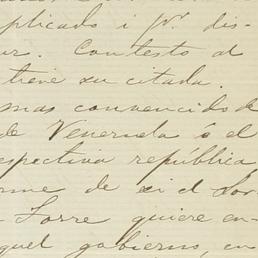 plicado i pr. dis-
ur. Contesto al
tiene su citada.
mas convencido de
de Venezuela ó el
espectiva república
rme de si el Sor
Torre quiere en-
quel gobierno, en